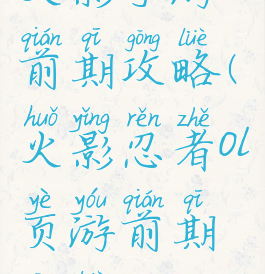 qián qī gōng lüè
前期攻略(
huǒ yǐng rěn zhě
火影忍者ol
yè yóu qián qī
页游前期